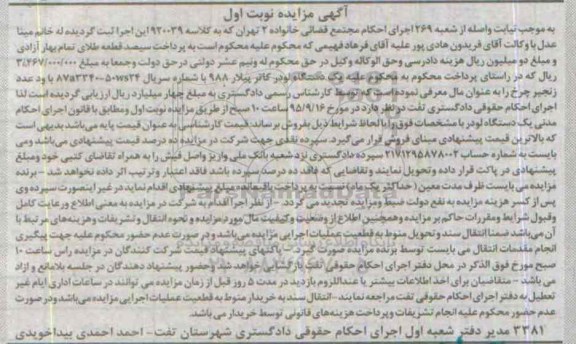 آگهی مزایده نوبت اول
به موجب نیابت واصله از شعبه ۲۶۹ اجرای احکام مجتمع قضائی خانواده ۲ تهران که به کلاسه ۹۲۰۰۳۹ این اجرا ثبت گردیده له خانم مینا
عدل با وکالت آقای فریدون هادی پور علیه آقای فرهاد فهیمی که محکوم علیه محکوم است به پرداخت سیصد قطعه طلای تمام بهار آزادی
و مبلغ دو میلیون ریال هزینه دادرسی وحق الوکاله وکیل در حق محکوم له ونیم عشر دولتی در حق دولت وجمعا به مبلغ ۳/۲۶۷/۰۰۰/۰۰۰
ریال که در راستای پرداخت محکوم به محکوم علیه یک دستگاه لودر کاتر پیلار ۹۸۸ با شماره سریال با دو عدد
زنجیر چرخ را به عنوان مال معرفی نموده است که توسط کارشناس رسمی دادگستری به مبلغ چهار میلیارد ریال ارزیابی گردیده است لذا
اجرای احکام حقوقی دادگستری تفت در نظر دارد در مورخ ۹۵/۹/۱۶ ساعت ۱۰ صبح از طریق مزایده نوبت اول ومطابق با قانون اجرای احکام
مدنی یک دستگاه لودر با مشخصات فوق را با لحاظ شرایط ذیل بفروش برساند: قیمت کارشناسی به عنوان قیمت پایه می باشد بدیهی است
که بالاترین قیمت پیشنهادی مبنای فروش قرار می گیرد. سپرده نقدی جهت شرکت در مزایده ده درصد قیمت پیشنهادی می باشد ومی
بایست به شماره حساب ۲۱۷۱۲۹۵۸۷۸۰۰۲ سپرده دادگستری نزد شعبه بانک ملی واریز واصل فیش را به همراه تقاضای کتبی خود ومبلغ
پیشنهادی در پاکت قرار داده و تحویل نمایند و تقاضایی که فاقد ده درصد سپرده باشد فاقد اعتبار و ترتیب اثر داده نخواهد شد - برنده
مزایده می بایست ظرف مدت معین ( حداکثر یک ماه ) نسبت به پرداخت باقیمانده مبلغ پیشنهادی اقدام نماید در غیر اینصورت سپرده وی
پس از کسر هزینه مزایده به نفع دولت ضبط ومزایده تجدید می گردد. - از نظر اجرا اقدام به شرکت در مزایده به معنی اطلاع ورعایت کامل
وقبول شرایط ومقررات حاکم بر مزایده وهمچنین اطلاع از وضعیت وکیفیت مال مورد مزایده و نحوه انتقال وتشریفات وهزینه های مرتبط با
آن می باشد ضمنا انتقال سند و تحویل منوط به قطعیت عملیات اجرایی می باشد و در صورت عدم حضور محکوم علیه جهت پیگیری
انجام مقدمات انتقال می بایست توسط برنده مزایده صورت گیرد. - پاکتهای پیشنهاد قیمت شرکت کنندگان در مزایده راس ساعت ۱۰
صبح مورخ فوق الذکر در محل دفتر اجرای احکام حقوقی تفت بازگشایی خواهد شد وحضور پیشنهاد دهندگان در جلسه بلامانع و ازاد
می باشد - متقاضیان برای اخذ اطلاعات بیشتر یا عنداللزوم بازدید در مدت ۵ روز قبل از زمان مزایده می توانند در ساعات اداری ایام غیر
تعطیل به دفتر اجرای احکام حقوقی تفت مراجعه نمایند - انتقال سند به خریدار منوط به قطعیت عملیات اجرایی مزایده می باشد ودر صورت
عدم حضور محکوم علیه انجام تشریفات وپرداخت هزینه های قانونی توسط خریدار می باشد.
۳۳۸۱ مدیر دفتر شعبه اول اجرای احکام حقوقی دادگستری شهرستان تفت - احمد احمدی بیداخویدی